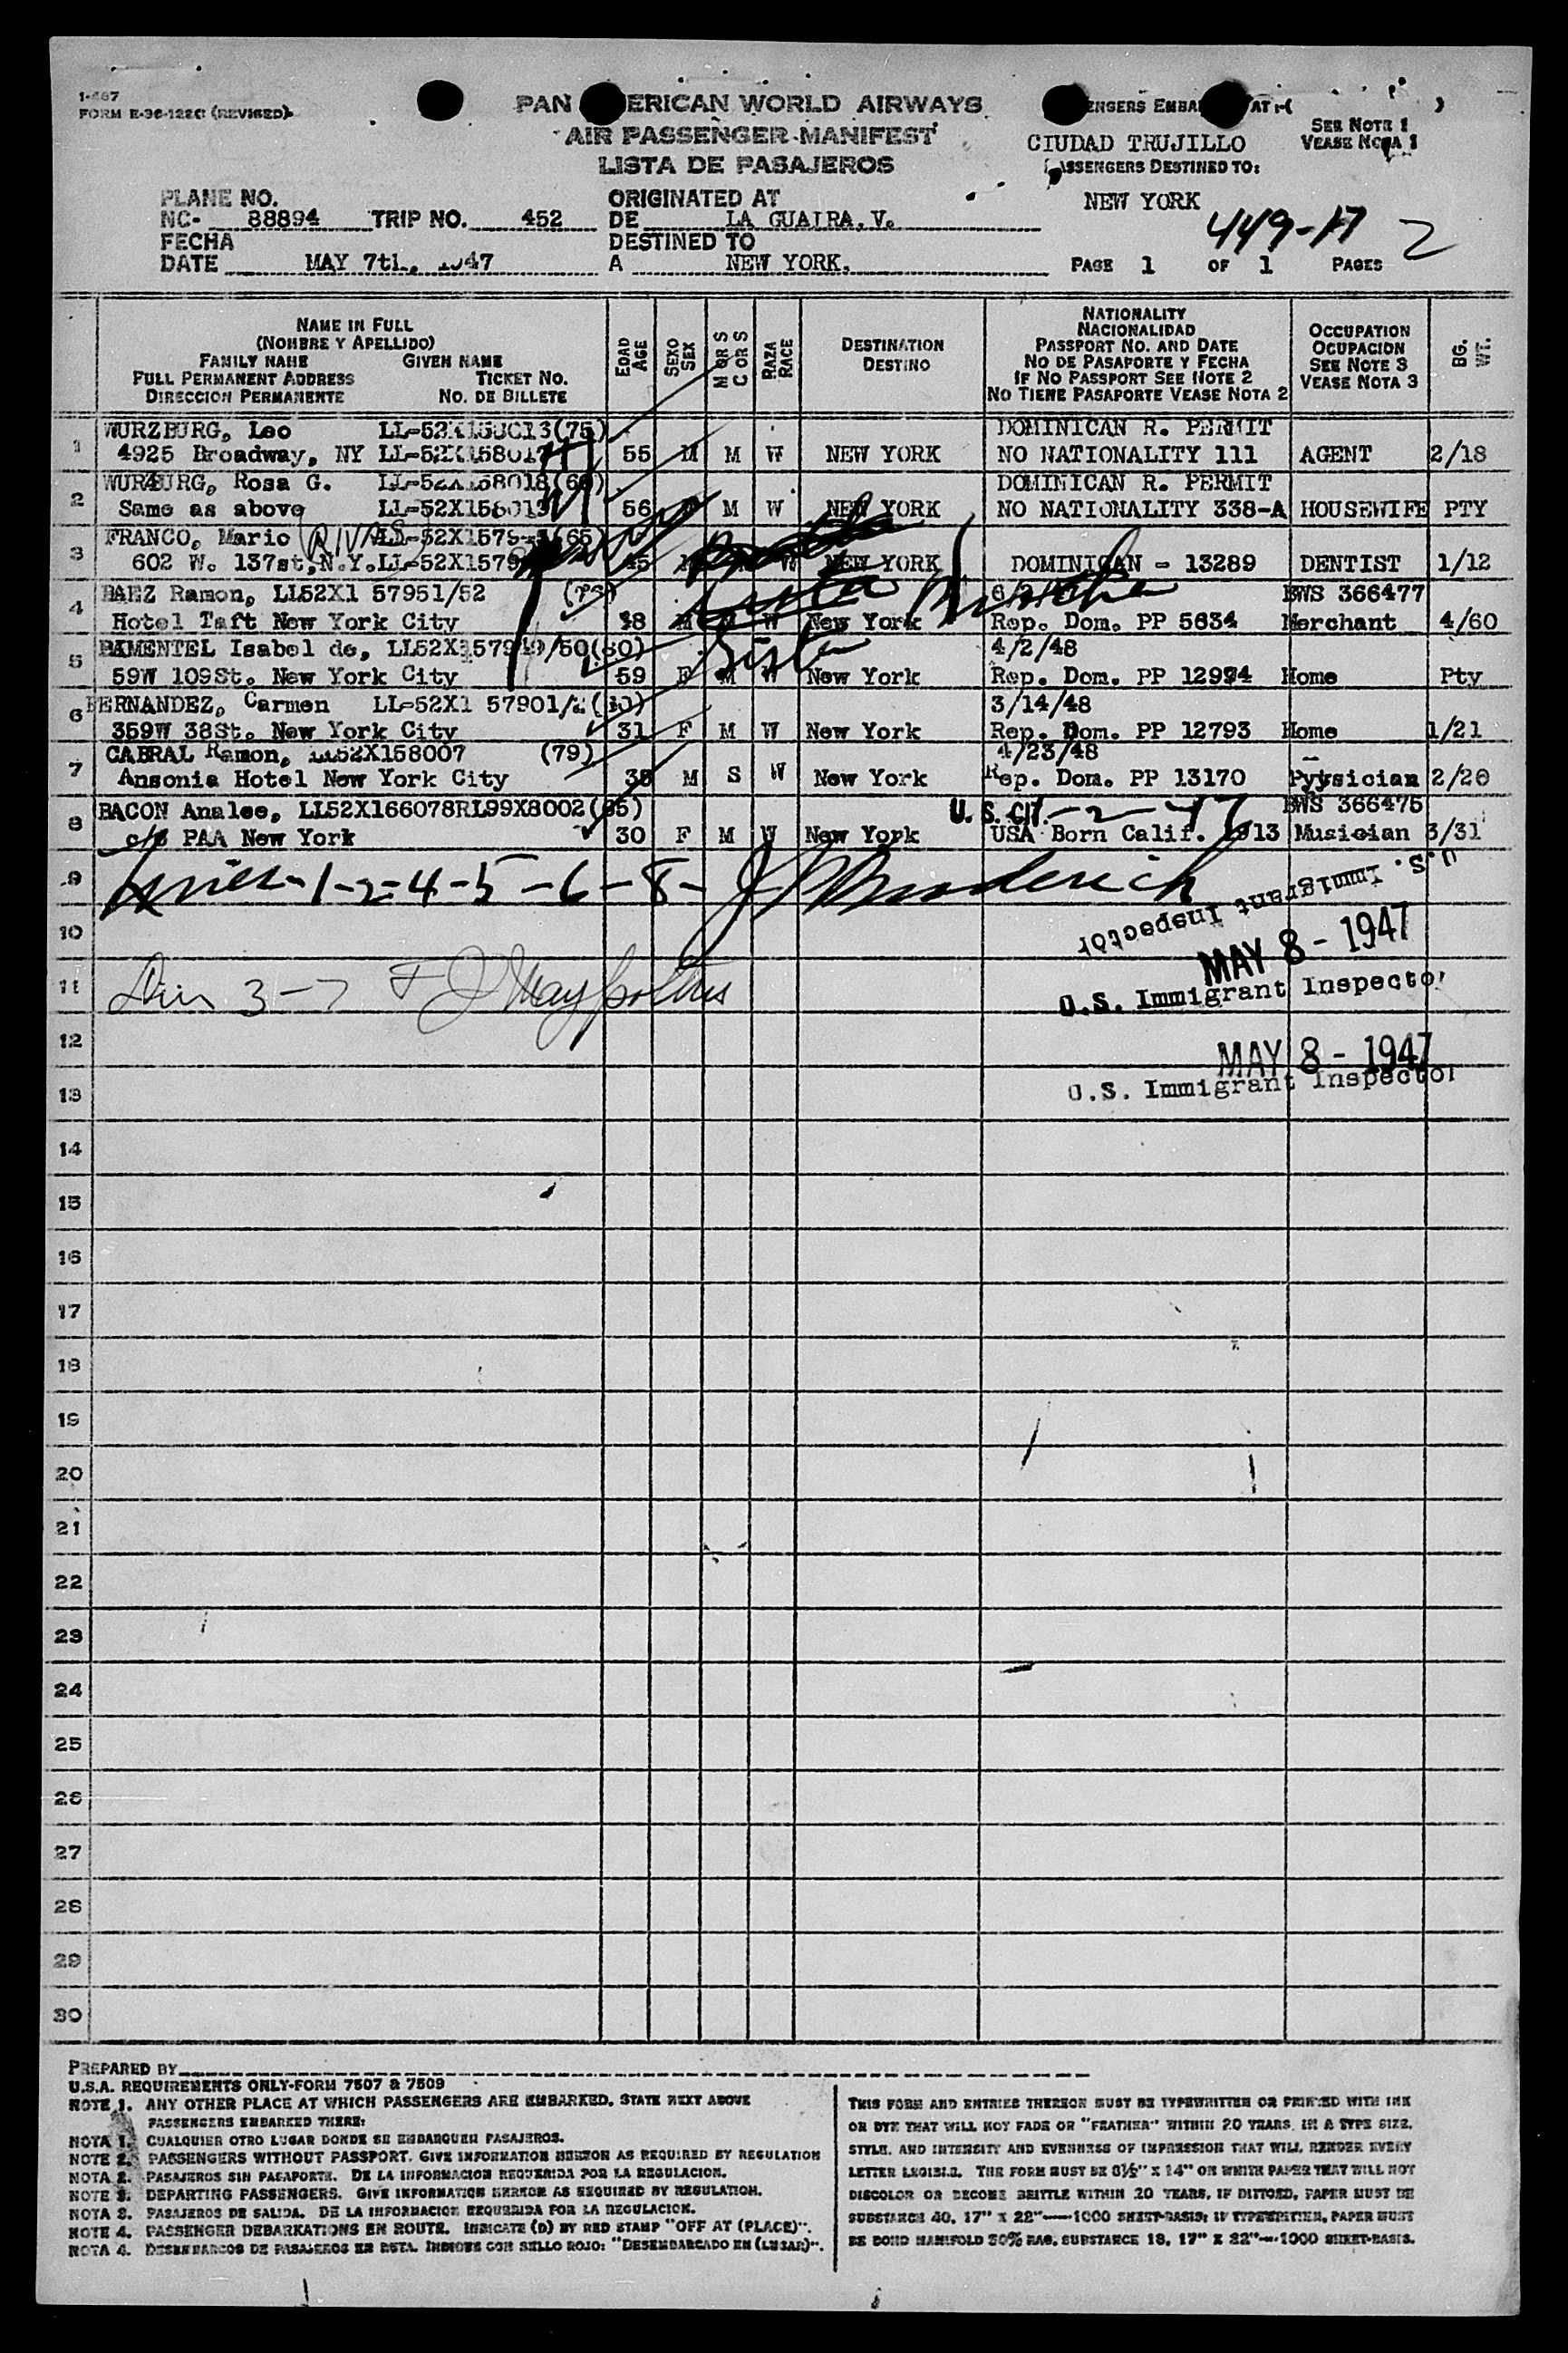 FORM E-36-122C (REVISED)
PAN ERICAN WORLD AIRWAYS
AIR PASSENGER MANIFEST
LISTA DE PASAJEROS
ENGERS EMBA AT:-( )
CIUDAD TRUJILLO
SEE NOTE 1
VEASE NOTA 1
PASSENGERS DESTINED TO:
NEW YORK
449-17 2
PLANE NO.
NC- 88894 TRIP NO. 452
FECHA
DATE MAY 7th, 1947
ORIGINATED AT
DE LA GUAIRA, V.
DESTINED TO
A NEW YORK.
PAGE 1 OF 1 PAGES
NAME IN FULL
(NOMBRE Y APELLIDO)
FAMILY NAME GIVEN NAME
FULL PERMANENT ADDRESS TICKET NO.
DIRECCION PERMANENTE NO. DE BILLETE
EDAD
AGE
SEXO
SEX
M OR S
C OR S
RAZA
RACE
DESTINATION
DESTINO
NATIONALITY
NACIONALIDAD
PASSPORT NO. AND DATE
NO DE PASAPORTE Y FECHA
IF NO PASSPORT SEE NOTE 2
NO TIENE PASAPORTE VEASE NOTA 2
OCCUPATION
OCUPACION
SEE NOTE 3
VEASE NOTA 3
BG.
WT.
1 WURZBURG, Leo LL-52X158013(75) DOMINICAN R. PERMIT
4925 Broadway, NY LL-52X158017 55 M M W NEW YORK NO NATIONALITY 111 AGENT 2/18
2 WURZBURG, Rosa G. LL-52X158018 DOMINICAN R. PERMIT
Same as above LL-52X158019 56 M W NEW YORK NO NATIONALITY 338-A HOUSEWIFE PTY
3 FRANCO, Mario (RIVAS) (65)
602 W. 137st, N.Y. 45 W NEW YORK DOMINICAN - 13289 DENTIST 1/12
4 BAEZ Ramon, LL52X1 57951/52 BWS 366477
Hotel Taft New York City 38 M M W New York Rep. Dom. PP 5634 Merchant 4/60
5 PAMENTEL Isabel de, LL52X157949/50(80) 4/2/48
59W 109St. New York City 59 F M W New York Rep. Dom. PP 12934 Home Pty
6 FERNANDEZ, Carmen LL-52X1 57901/ 3/14/48
359W 38St. New York City 31 F M W New York Rep. Dom. PP 12793 Home 1/21
7 CABRAL Ramon, LL52X158007 (79) 4/23/48
Ansonia Hotel New York City 38 M S W New York Rep. Dom. PP 13170 Pyysician 2/20
8 BACON Analee, LL52X166078RL99X8002(65) U.S. CIT. BWS 366475
c/o PAA New York 30 F M W New York USA Born Calif. 1913 Musician 3/31
9 1-2-4-5-6-8- J Broderich
U.S. Immigrant Inspector
10
MAY 8 - 1947
11 3-7
U.S. Immigrant Inspector
12
MAY 8 - 1947
13
U.S. Immigrant Inspector
14
15
16
17
18
19
20
21
22
23
24
25
26
27
28
29
30
PREPARED BY
U.S.A. REQUIREMENTS ONLY-FORM 7507 & 7509
NOTE 1. ANY OTHER PLACE AT WHICH PASSENGERS ARE EMBARKED, STATE NEXT ABOVE
PASSENGERS EMBARKED THERE:
NOTA 1. CUALQUIER OTRO LUGAR DONDE SE EMBARQUEN PASAJEROS.
NOTE 2. PASSENGERS WITHOUT PASSPORT. GIVE INFORMATION HEREON AS REQUIRED BY REGULATION
NOTA 2. PASAJEROS SIN PASAPORTE. DE LA INFORMACION REQUERIDA POR LA REGULACION.
NOTE 3. DEPARTING PASSENGERS. GIVE INFORMATION HEREON AS REQUIRED BY REGULATION.
NOTA 3. PASAJEROS DE SALIDA. DE LA INFORMACION REQUERIDA POR LA REGULACION.
NOTE 4. PASSENGER DEBARKATIONS EN ROUTE. INDICATE (D) BY RED STAMP "OFF AT (PLACE)".
NOTA 4. DESEMBARCOS DE PASAJEROS EN RUTA. INDIQUE CON SELLO ROJO: "DESEMBARCADO EN (LUGAR)".
THIS FORM AND ENTRIES THEREON MUST BE TYPEWRITTEN OR PRINTED WITH INK
OR DYE THAT WILL NOT FADE OR "FEATHER" WITHIN 20 YEARS, IN A TYPE SIZE,
STYLE, AND INTENSITY AND EVENNESS OF IMPRESSION THAT WILL RENDER EVERY
LETTER LEGIBLE. THE FORM MUST BE 8½" X 14" ON WHITE PAPER THAT WILL NOT
DISCOLOR OR BECOME BRITTLE WITHIN 20 YEARS. IF DITTOED, PAPER MUST BE
SUBSTANCE 40, 17" X 22"—1000 SHEET-BASIS; IF TYPEWRITTEN, PAPER MUST
BE BOND MANIFOLD 50% RAG, SUBSTANCE 18, 17" X 22"—1000 SHEET-BASIS.